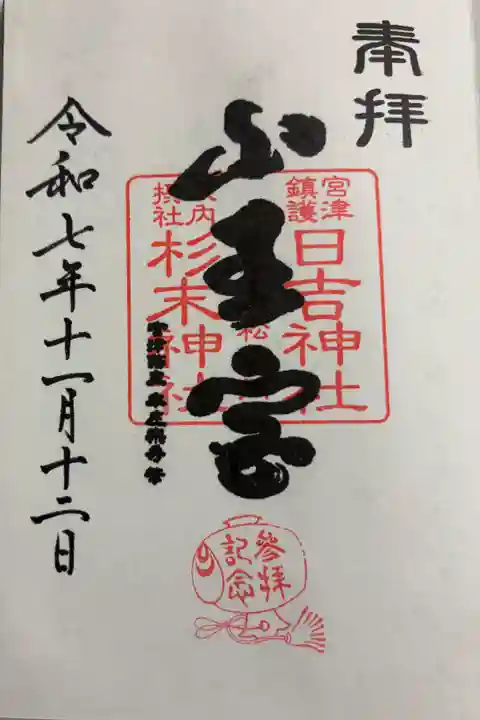 奉拝
宮津
鎮護
日吉神社
山王宮
松
境内
摂社
杉末神社
令和七年十一月十二日
參拝
記念